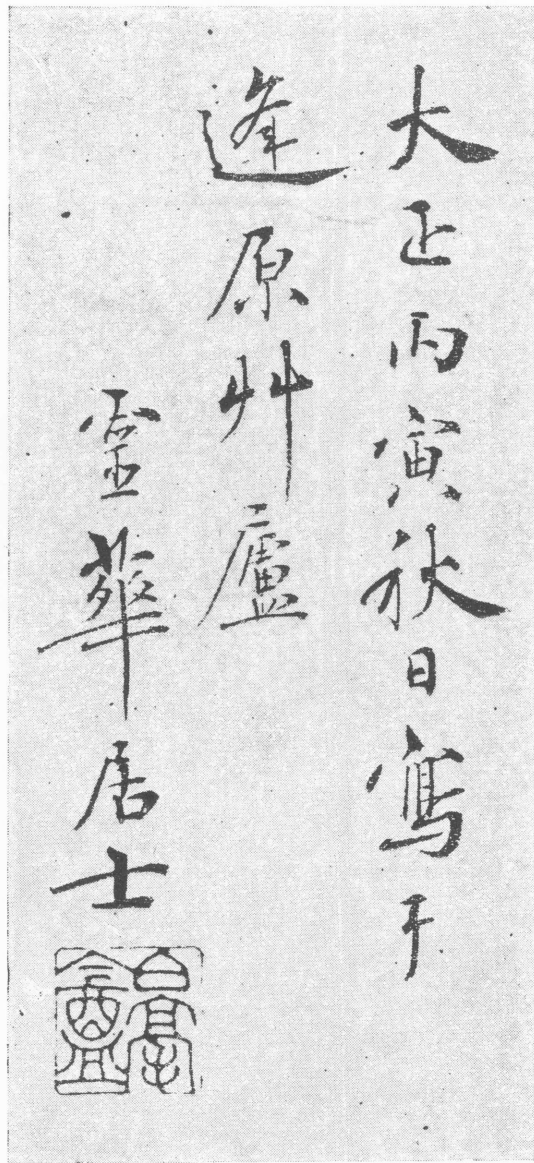 大正丙寅秋日寫于
逢原艸廬
霊華居士